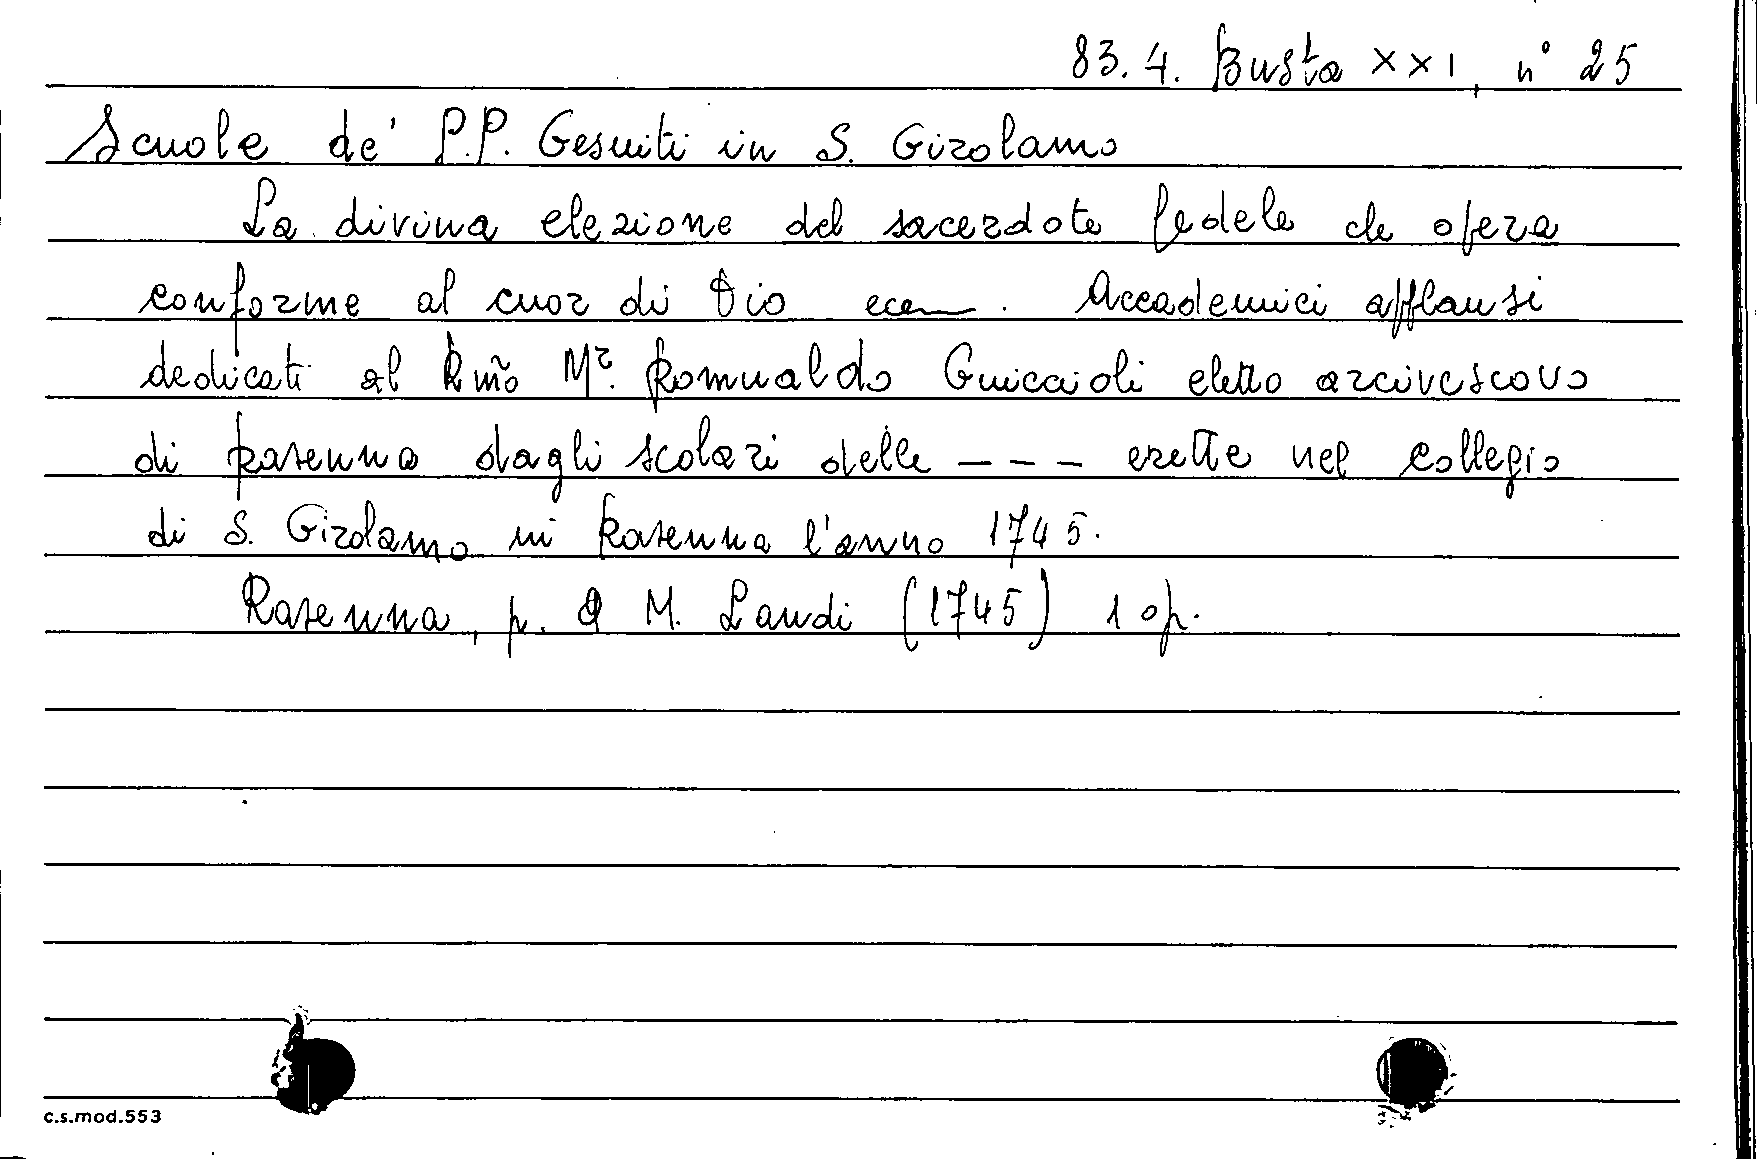 83.4. Busta XXI, n° 25
Scuole de' P.P. Gesuiti in S. Girolamo
La divina elezione del sacerdote fedele che opera
conforme al cuor di Dio ecc. Accademici applausi
dedicati al Rmo Mr. Romualdo Guiccioli eletto arcivescovo
di Ravenna dagli scolari delle --- erette nel collegio
di S. Girolamo in Ravenna l'anno 1745.
Ravenna, p. A M. Landi (1745) 1 op.
c.s.mod.553